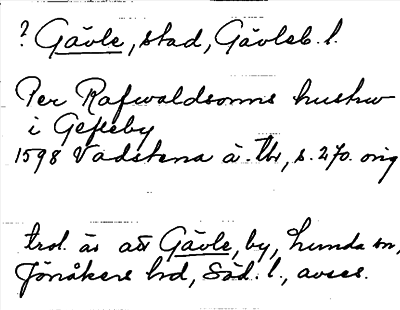 ? Gävle, stad, Gävleb. l.
Per Rafwaldsonns hustrw
i Gefleby
1598 Vadstena ä. Tbr, s. 270. orig
trol. är att Gävle, by, Lunda sn,
Jönåkers hd, Söd. l., avses.